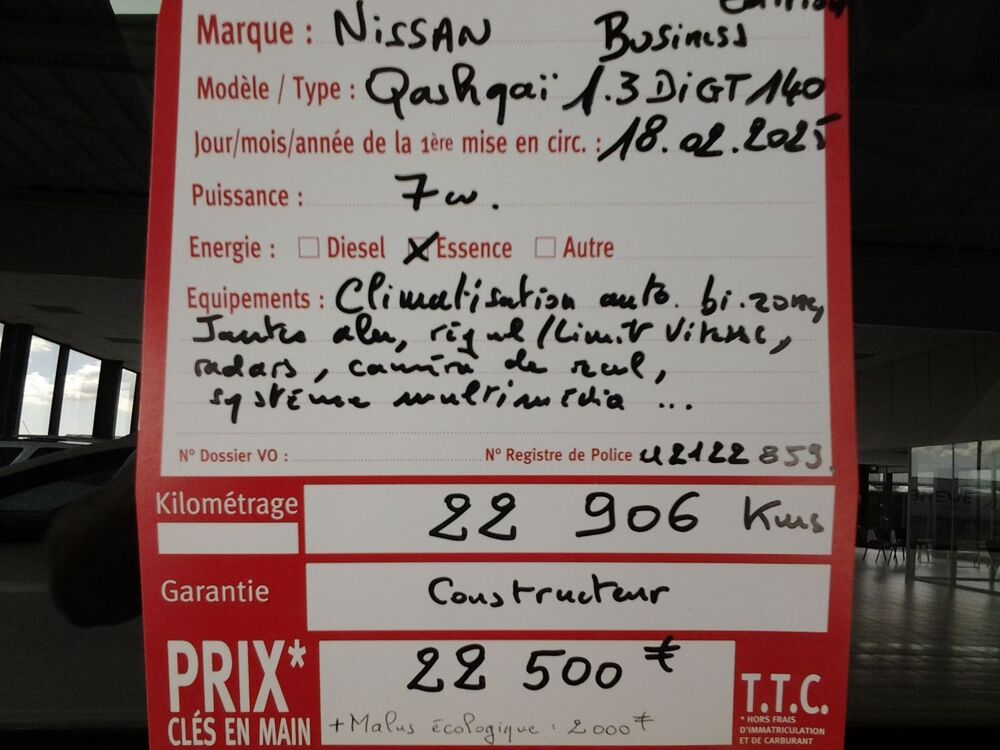 Edition
Marque : NISSAN Business
Modèle / Type : Qashqaï 1.3 DiGT 140
Jour/mois/année de la 1ère mise en circ. : 18.02.2025
Puissance : 7 cv.
Energie : Diesel Essence Autre
Equipements : Climatisation auto. bi.zone,
Jantes alu, régul/Limit Vitesse,
radars, caméra de recul,
système multimédia ...
N° Dossier VO : N° Registre de Police 42122 859
Kilométrage 22 906 Kms
Garantie Constructeur
PRIX* 22 500 €
CLÉS EN MAIN + Malus écologique : 2000 €
T.T.C.
* HORS FRAIS
D'IMMATRICULATION
ET DE CARBURANT